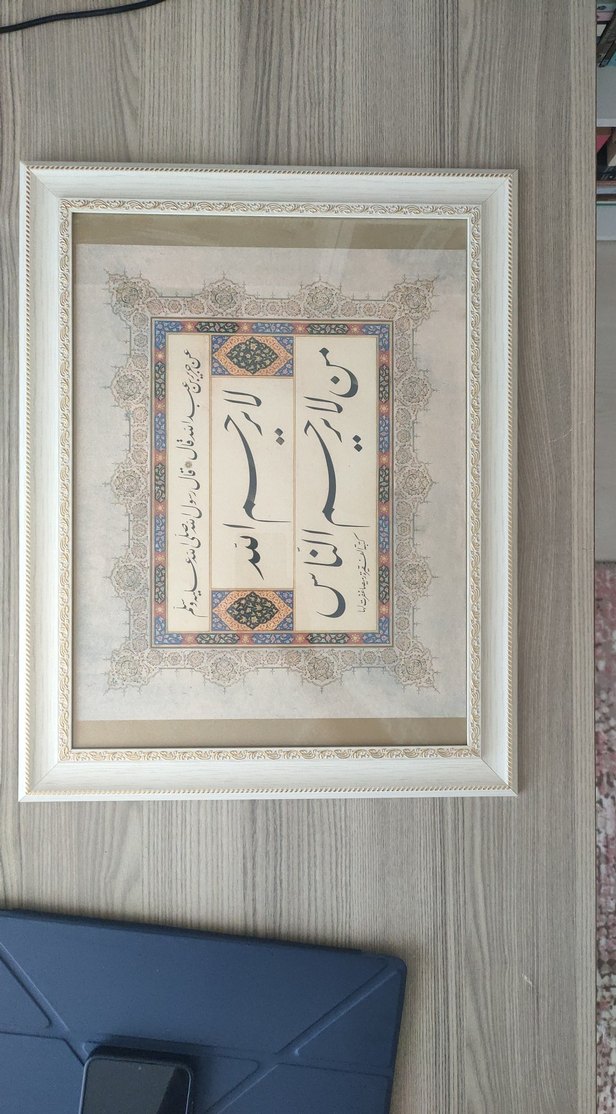 عن جرير بن عبد الله قال قال رسول الله صلى الله عليه وسلم
لا يرحم الله
من لا يرحم الناس